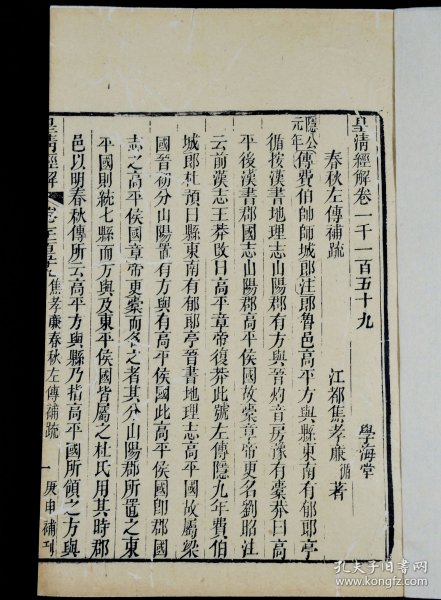 皇清經解卷一千一百五十九
學海堂
春秋左傳補疏
江都焦孝廉循著
隱公元年傳費伯帥師城郎注郎魯邑高平方與縣東南有郁郎亭
循按漢書地理志山陽郡有方與晉灼音房豫有橐莽曰高
平後漢書郡國志山陽郡高平侯國故橐章帝更名劉昭注
云前漢志王莽改曰高平章帝復莽此號左傳隱九年費伯
城郎杜預曰縣東南有郁郎亭晉書地理志高平國故屬梁
國晉初分山陽置有方與有高平侯國此高平侯國卽郡國
志之高平侯國章帝更橐而名之者其分山陽郡所置之東
平國則統七縣而方與及東平侯國皆屬之杜氏用其時郡
邑以明春秋傳所云高平方與縣乃指高平國所領之方與
皇清經解
焦孝廉春秋左傳補疏
一
庚申補刊
孔夫子旧书网
www.kongfz.com